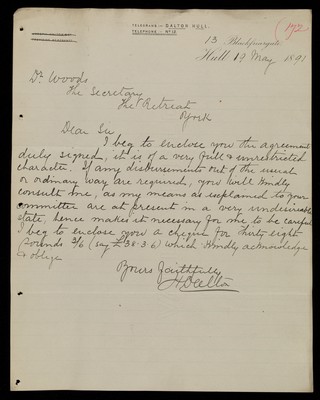 TELEGRAMS - DALTON HULL.
TELEPHONE - Nº 12.
192
13 Blackfriargate
Hull 19 May 1891
Dr. Woods
The Secretary
The Retreat
York
Dear Sir
I beg to enclose you the agreement
duly signed, it is of a very full & unrestricted
character. If any disbursements out of the usual
or ordinary way are required, you will kindly
consult me, as my means as explained to your
committee are at present in a very undesireable
state, hence makes it necessary for me to be careful
I beg to enclose you a cheque for thirty eight
pounds 3/6 (say £38.3.6) which kindly acknowledge
& oblige
Yours faithfully